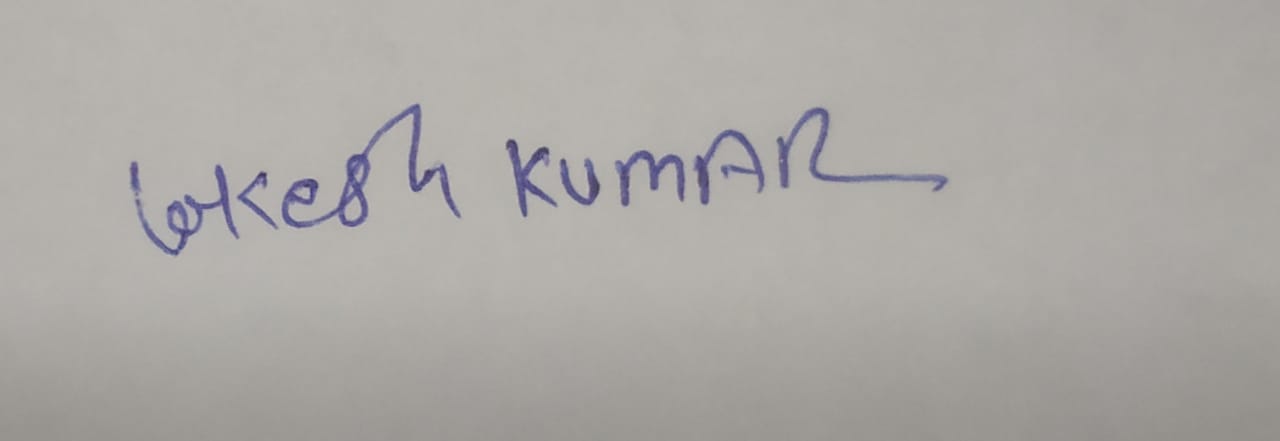 Lokesh KUMAR